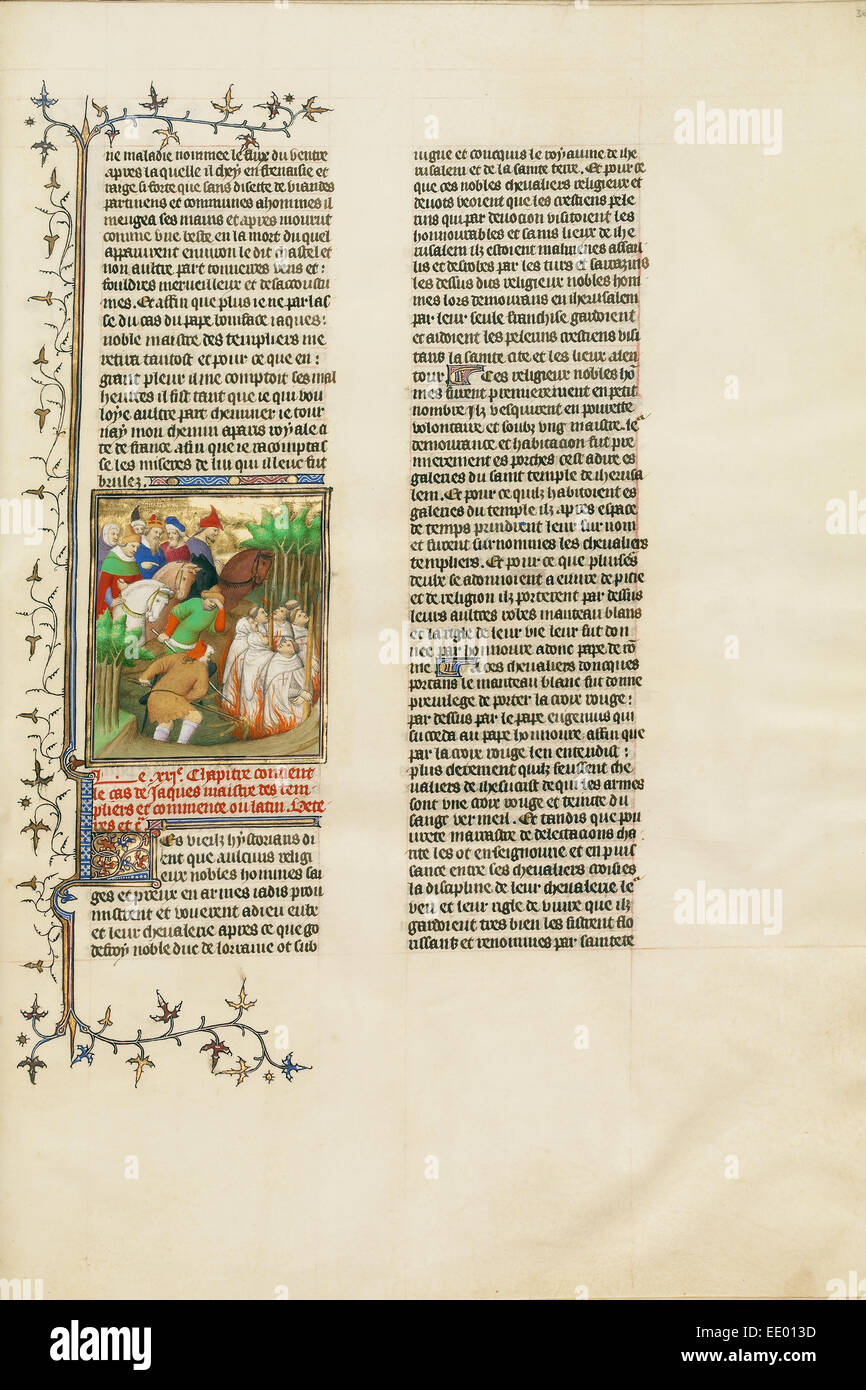 ne maladie nommee le flux du ventre
apres laquelle il chey en frenaisie et
rarge si forte que sans disette de viandes
par uiuens et communes a hommes il
menga ses mains et apres mourut
comme vne beste en la mort du quel
apparurent enuiron le dit chastel et
non aultre part tonnerres vens et
fouldres merueilleux et desacoustu
mes. Et affin que plus ie ne parlas
se du cas du pape boniface iaques
noble maistre des templiers me
retira tantost et pour ce que en
grant pleur il me comptoit ses mal
heurtes il fist tant que ie qui vou
loye aultre part cheminer ie tour
nay mon chemin a paris royale ci
te de france afin que ie racomptas
se les miseres de lui qui illeuc fut
brulez.
Le .xxi.e Chapitre contient
le cas de Jaques maistre des tem
pliers et commence ou latin. Vete
res et c.
Les vieilz hystorians di
ent que aulcuns religi
eux nobles hommes sai
ges et preux en armes iadis prou
mistrent et vouerent a dieu eulx
et leur cheualerie apres ce que go
defroy noble duc de lorraine ot sub
iugue et conquis le royaume de ihe
rusalem et de la sainte terre. Et pour ce
que ces nobles cheualiers religieux et
deuots veoient que les crestiens pele
rins qui par deuocion visitoient les
honnourables et sains lieux de ihe
rusalem ilz estoient malmenes assail
lis et desrobes par les turs et sarrazins
les dessus dits religieux nobles hom
mes lors demourans en iherusalem
par leur seule franchise gardoient
et aidoient les pelerins crestiens visi
tans la sainte cite et les lieux alen
tour. Ces religieux nobles ho
mes furent premierement en petit
nombre. Ilz vesquirent en pourete
volontaire et soubz vng maistre. le
demourance et habitacion fut pre
mierement es porches cest a dire es
galeries du saint temple de iherusa
lem. Et pour ce quilz habitoient es
galeries du temple. ilz apres espace
de temps prindrent leur surnom
et furent surnommes les cheualiers
templiers. Et pour ce que pluises
deulx se adonnoient a euure de pitie
et de religion ilz porterent par dessus
leurs aultres robes manteau blanc
et la rigle de leur vie leur fut don
nee par honnoure adonc pape de ro
me. A ces cheualiers doncques
portans le manteau blanc fut donne
preuilege de porter la croix rouge
par dessus par le pape eugenius qui
succeda au pape honnoure affin que
par la croix rouge len entendist
plus clerement quilz feussent che
ualiers de ihesucrist de qui les armes
sont vne croix rouge et teinte du
sang vermeil. Et tandis que pou
urete marrastre de delectacions cha
rite les ot en seigneurie et en puis
sance entre ses cheualiers croisies
la discipline de leur cheualerie le
veu et leur rigle de viure que ilz
gardoient tres bien les fistrent flo
rissants et renommes par saintete
alamy
a
alamy
www.alamy.com
Image ID: EE013D